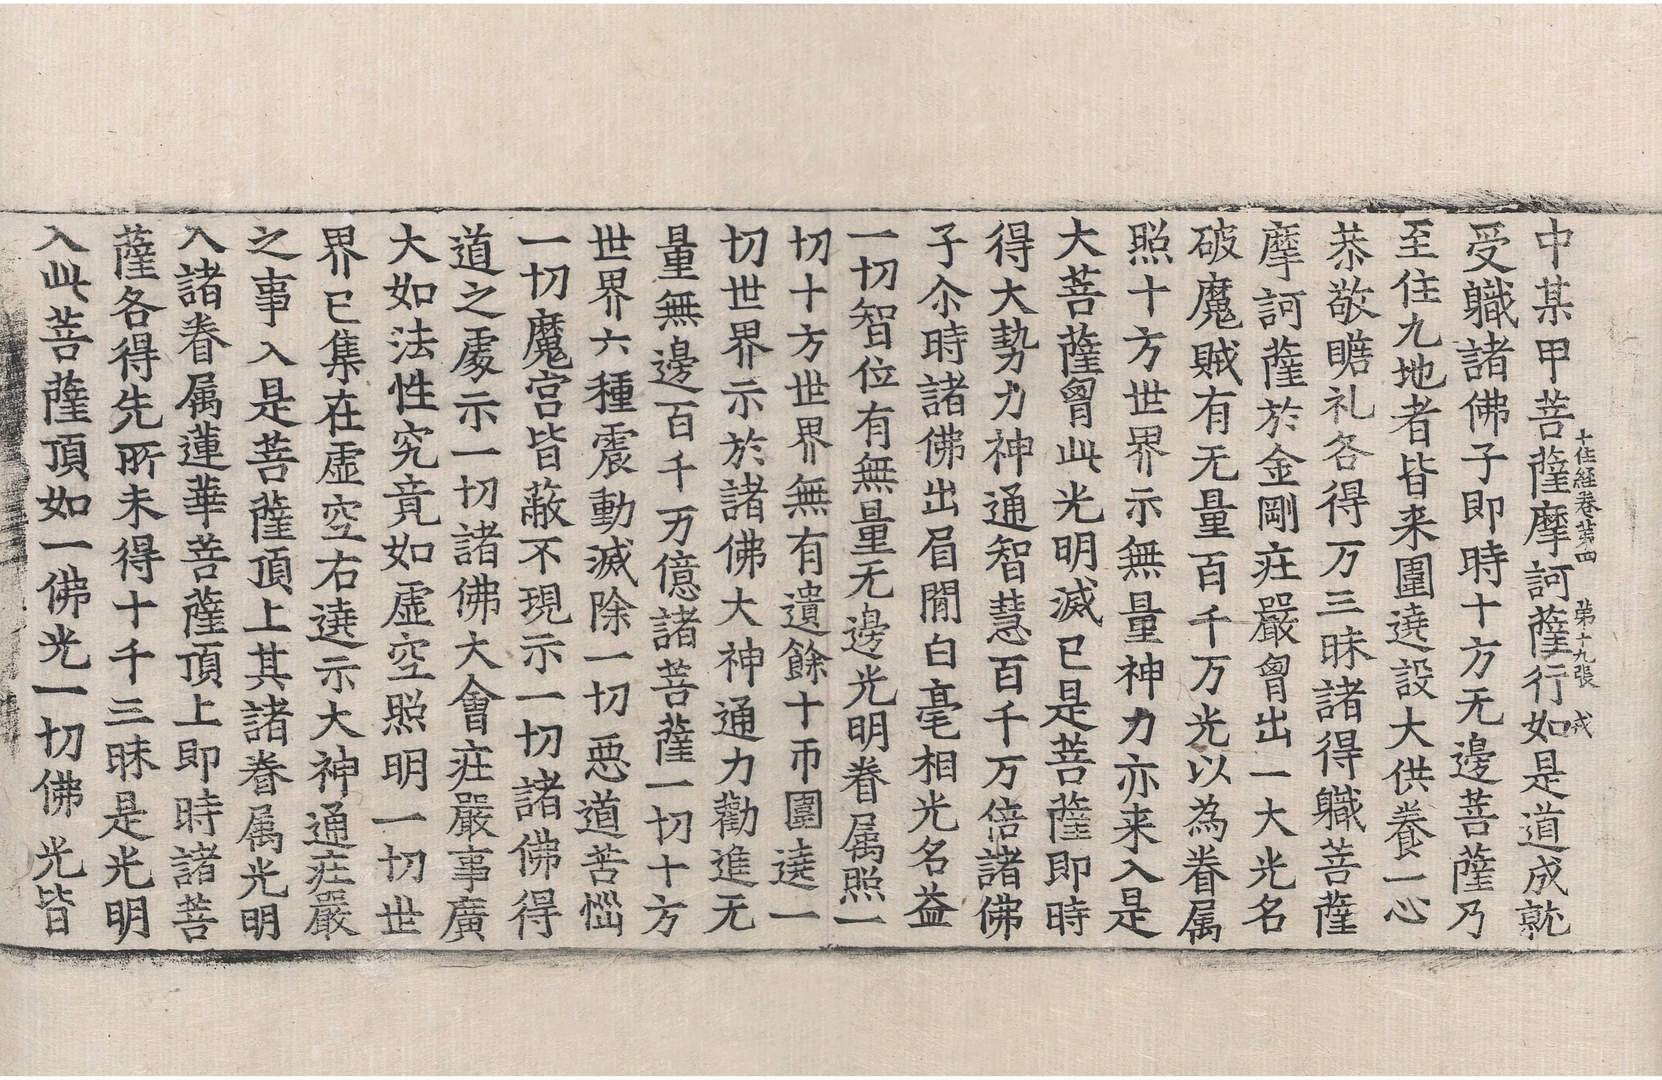 十住經卷第四　第十九張　戎
中某甲菩薩摩訶薩行如是道成就
受職諸佛子即時十方无邊菩薩乃
至住九地者皆来圍遶設大供養一心
恭敬瞻礼各得万三昧諸得職菩薩
摩訶薩於金剛疘嚴𦙄出一大光名
破魔賊有无量百千万光以為眷属
照十方世界示無量神力亦来入是
大菩薩𦙄此光明滅已是菩薩即時
得大勢力神通智慧百千万倍諸佛
子尒時諸佛出眉閒白毫相光名益
一切智位有無量无邊光明眷属照一
切十方世界無有遺餘十帀圍遶一
切世界示於諸佛大神通力勸進无
量無邊百千万億諸菩薩一切十方
世界六種震動滅除一切惡道苦惱
一切魔宫皆蔽不現示一切諸佛得
道之處示一切諸佛大會疘嚴事廣
大如法性究竟如虛空照明一切世
界已集在虛空右遶示大神通疘嚴
之事入是菩薩頂上其諸眷属光明
入諸眷属蓮華菩薩頂上即時諸菩
薩各得先所未得十千三昧是光明
入此菩薩頂如一佛光一切佛光皆